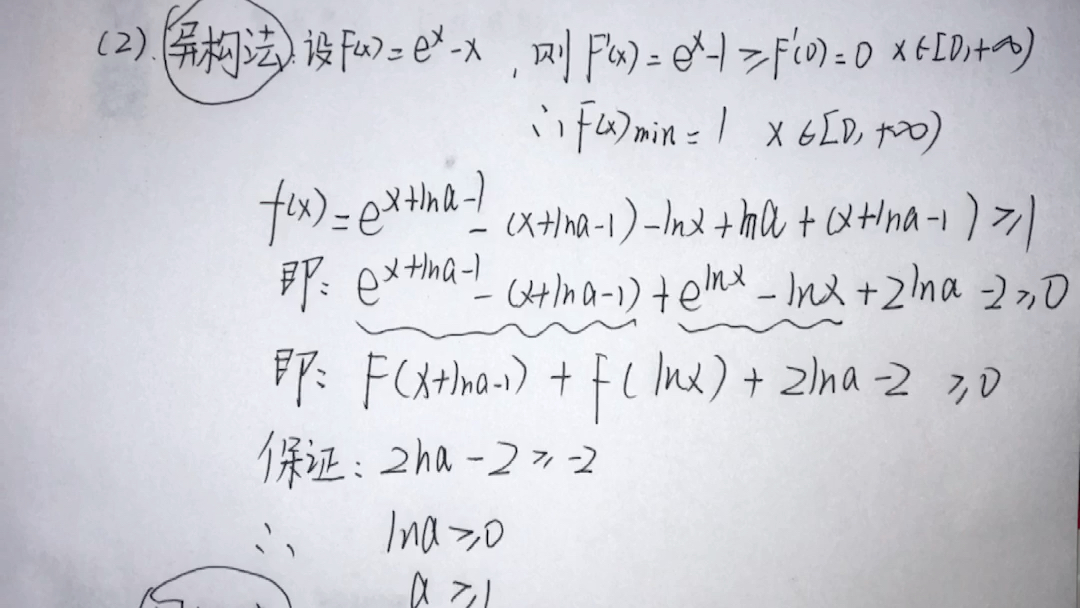 (2).异构法:设F(x)=e^x-x ,则F'(x)=e^x-1≥F'(0)=0 x∈[0,+∞)
∴F(x)min=1 x∈[0,+∞)
f(x)=e^{x+lna-1}-(x+lna-1)-lnx+lna+(x+lna-1)≥1
即:e^{x+lna-1}-(x+lna-1)+e^{lnx}-lnx+2lna-2≥0
即:F(x+lna-1)+F(lnx)+2lna-2≥0
保证:2lna-2≥-2
∴ lna≥0
a≥1